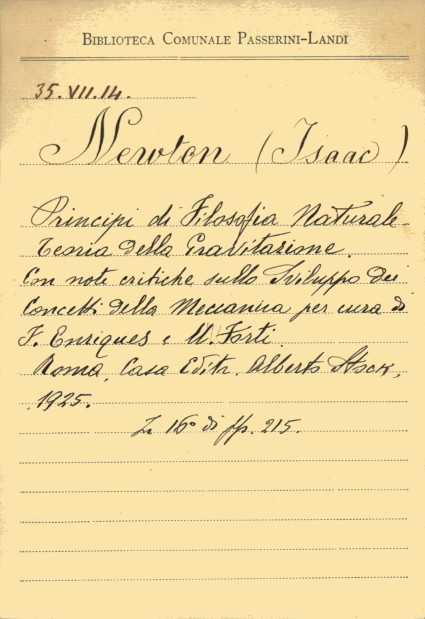 BIBLIOTECA COMUNALE PASSERINI-LANDI
35.VII.14.
Newton (Isaac)
Principi di Filosofia Naturale
Teoria della Gravitazione.
Con note critiche sullo Sviluppo dei
Concetti della Meccanica per cura di
F. Enriques e U. Forti.
Roma, Casa Editr. Alberto Stock,
1925.
In 16° di pp. 215.